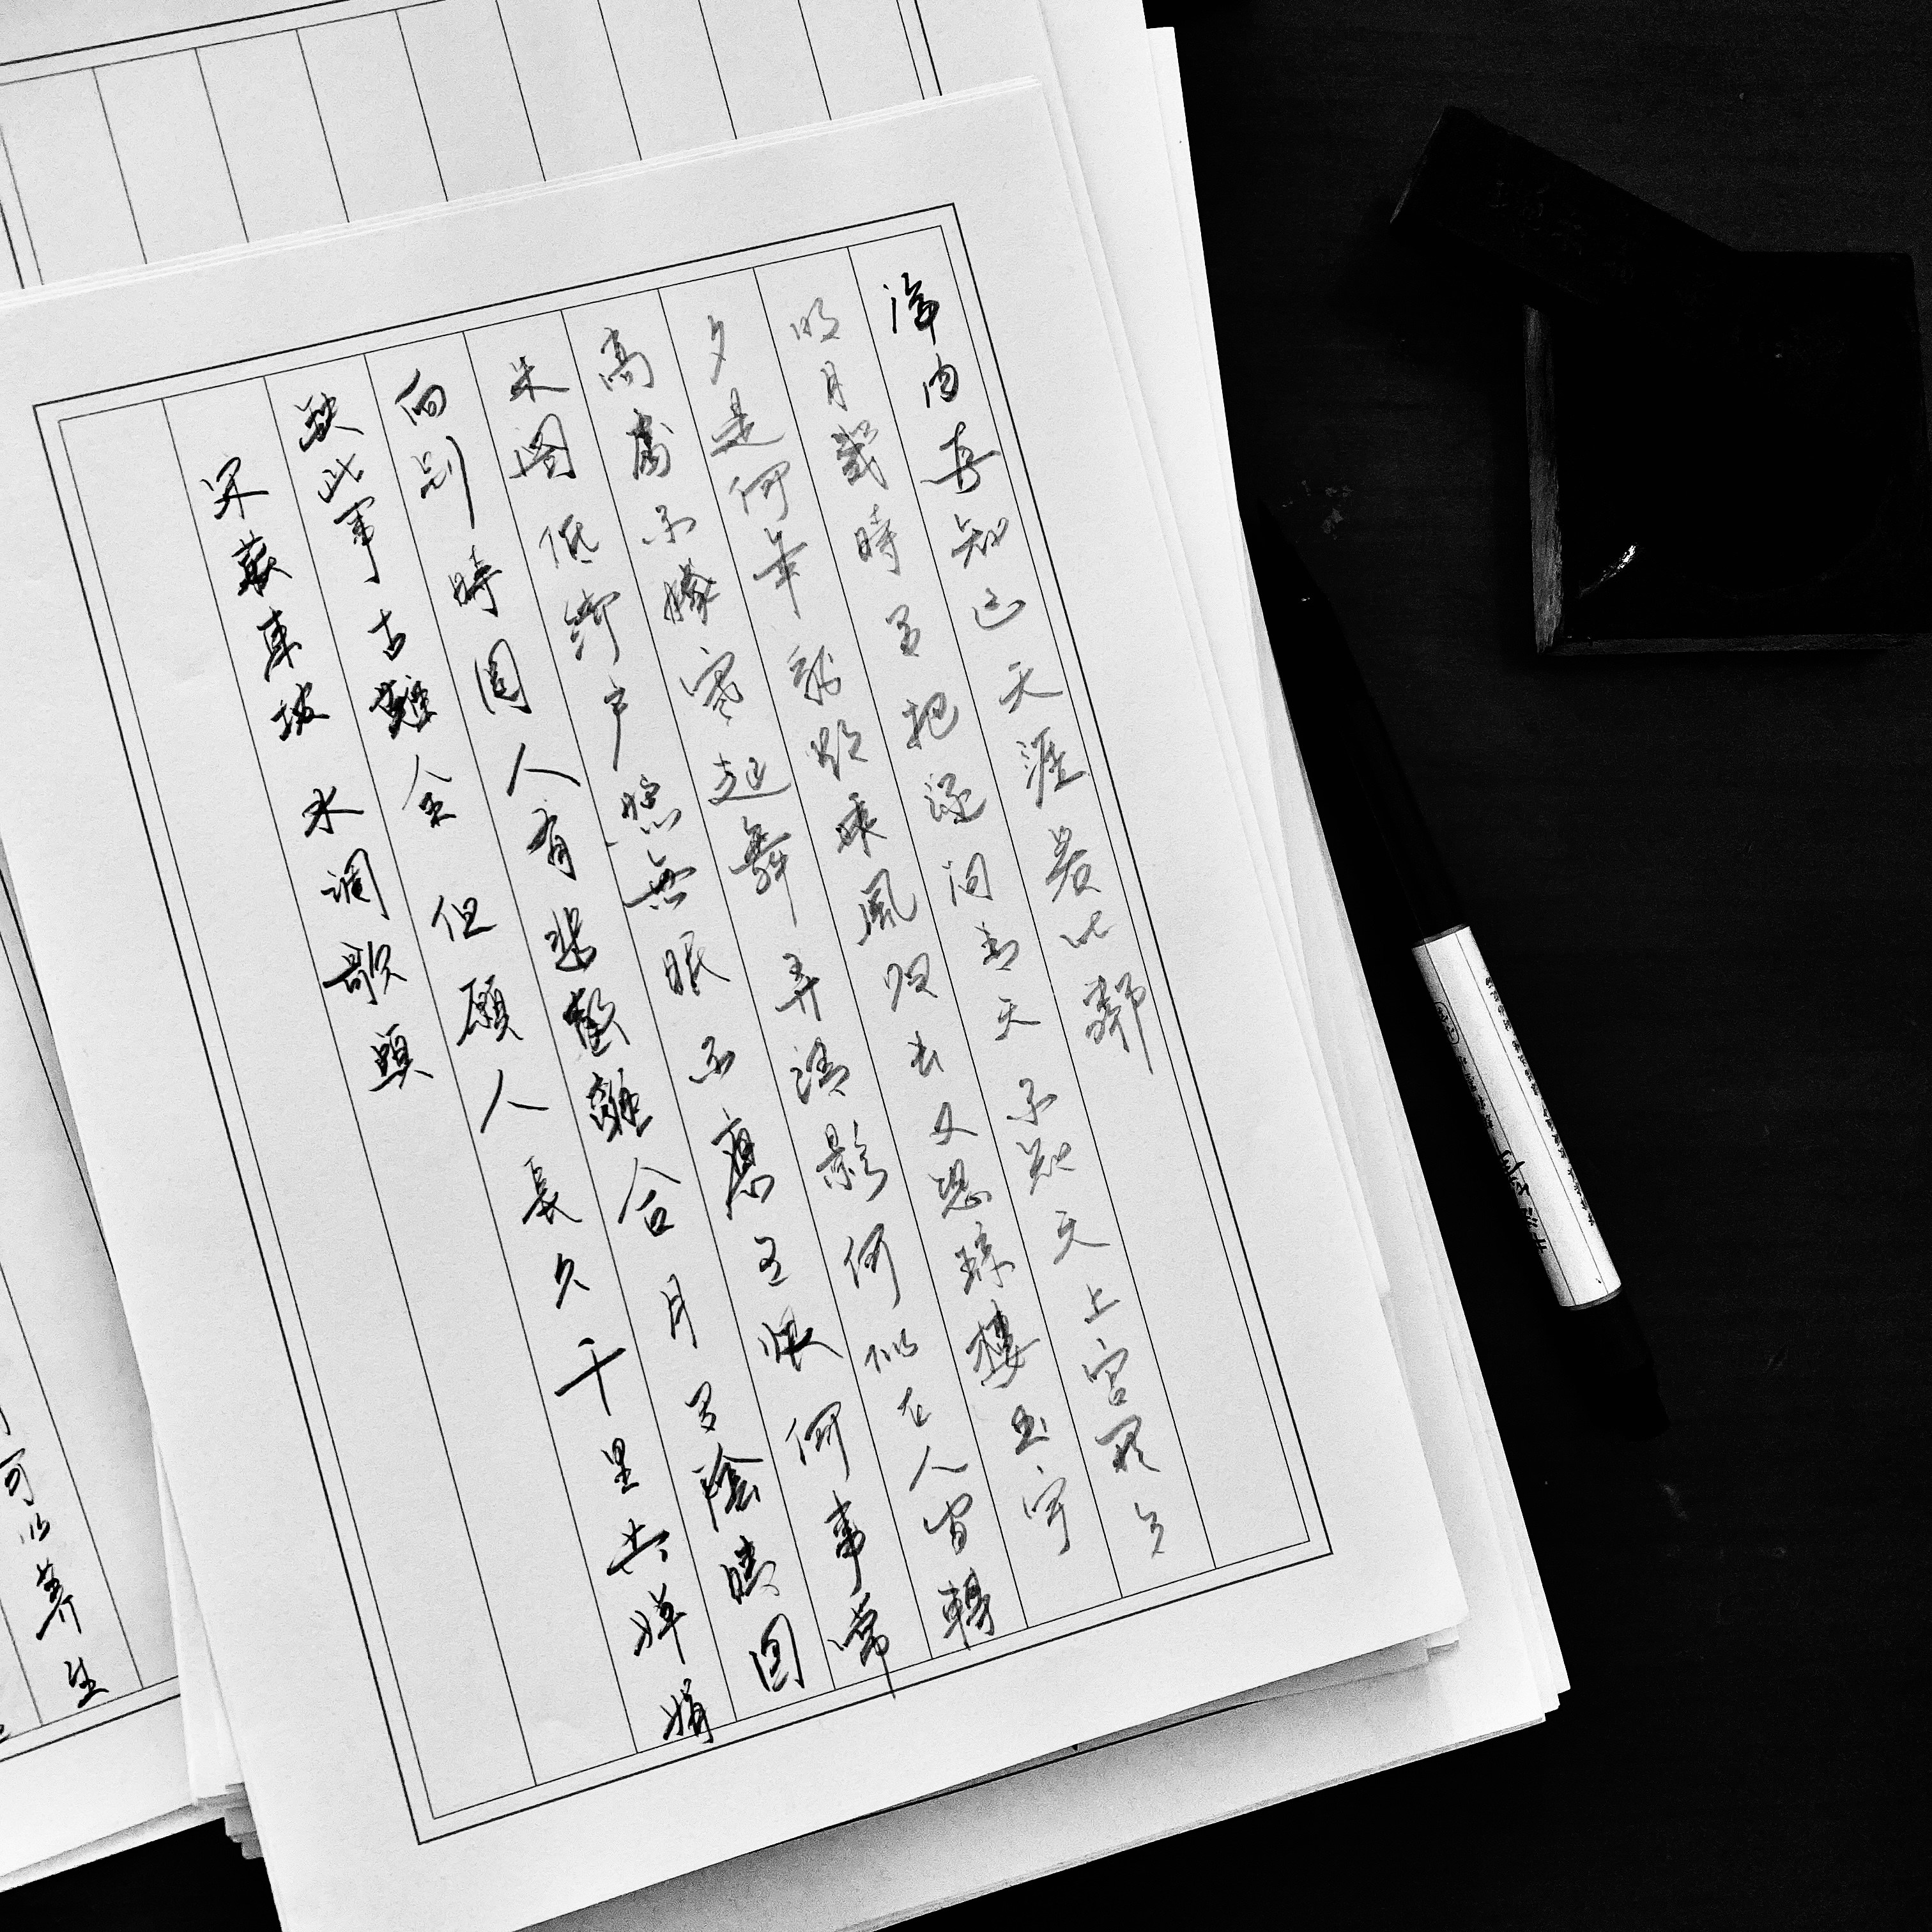 海内存知己天涯若比鄰
明月幾時有把酒问青天不知天上宫阙今
夕是何年我欲乘風归去又恐琼樓玉宇
高處不勝寒起舞弄清影何似在人间轉
朱阁低绮户照無眠不應有恨何事常
向别時圆人有悲歡離合月有陰晴圆
缺此事古難全但願人長久千里共婵娟
宋蘇東坡 水调歌頭
可以养生